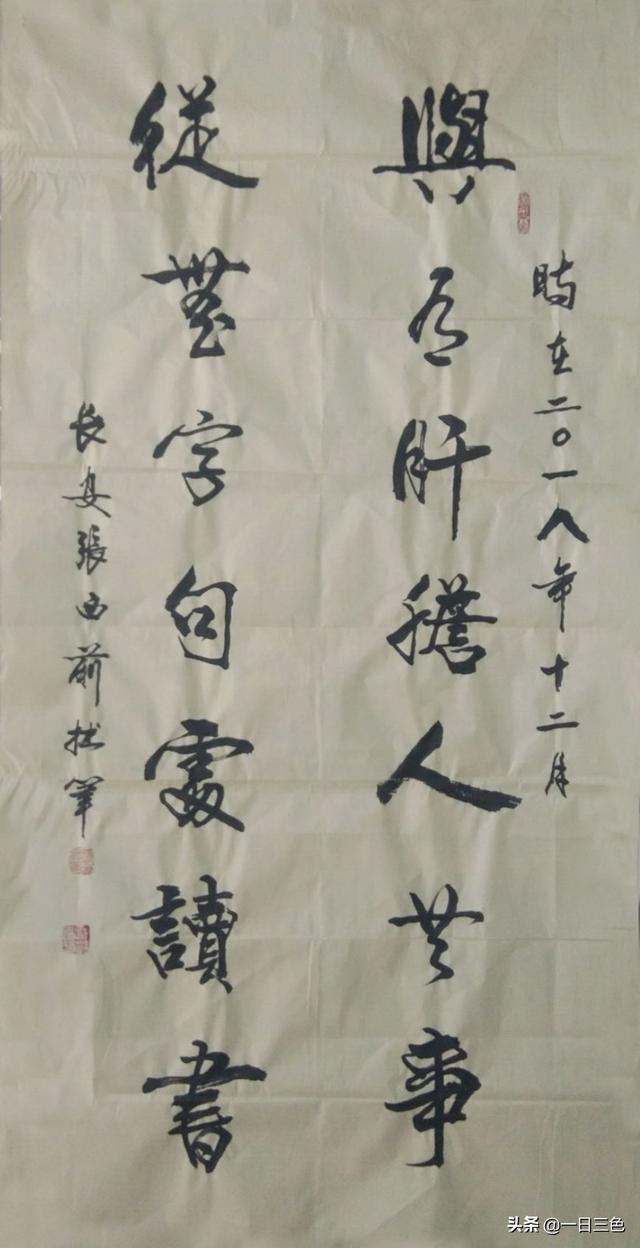 時在二〇一八年十二月
與有肝膽人共事
從無字句處讀書
長安張西前拙筆
头条 @一日三色